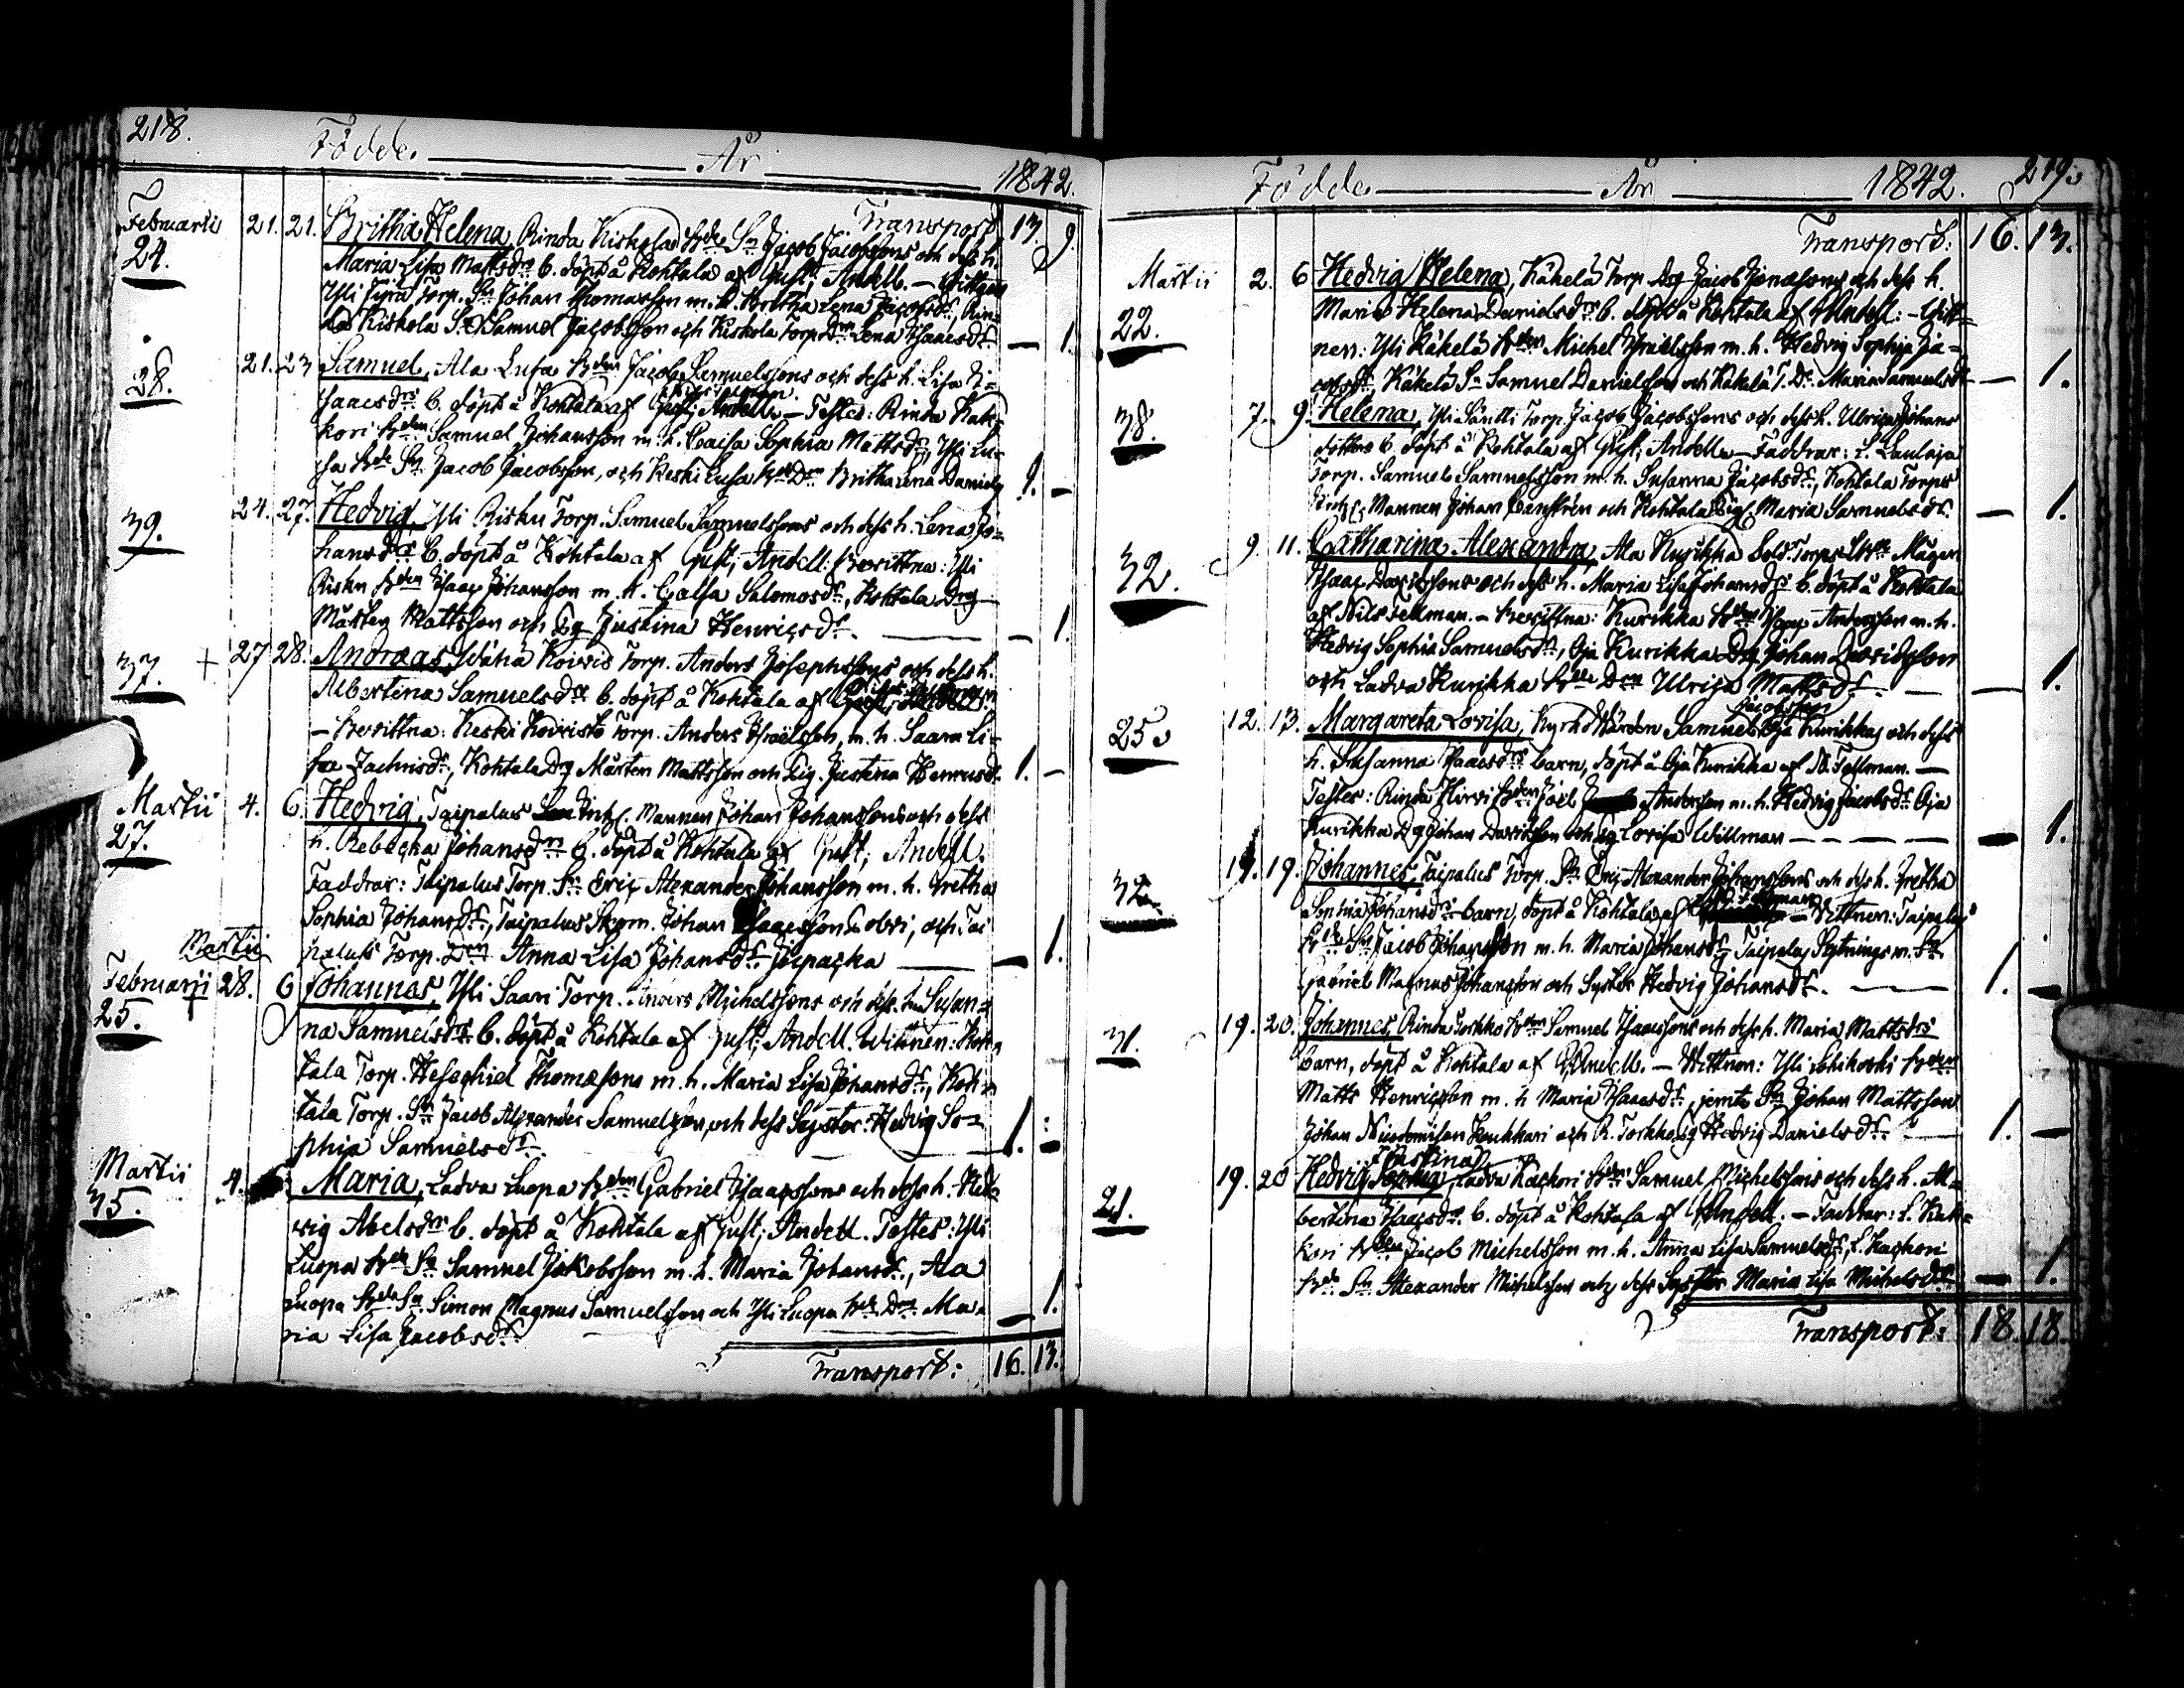 218.
Födde År 1842.
Transport 13. 9
Februarii 21. 21. Britha Helena, Rinda Kiskola Bde Sn Jacob Jacobssons och dess h.
24. Maria Lisa Mattsdrs b. döpt å Kohtala af Gust; Andell. — Wittnen
Yli Jyrä Torp. Sn Johan Thomasson m. h. Britha Lena Jacobsdr, Rin-
da Kiskola Samuel Jacobsson och Kiskola Torp. Drn Lena Isaacsdr — 1.
21. 23 Samuel, Ala Lusa Bden Jacob Samuelssons och dess h. Lisa I-
28. saacsdrs b. döpt å Kohtala af — Testes: Rinda Kak-
kori Bden Samuel Johansson m. h. Caisa Sophia Mattsdr, Yli Lu-
sa Bde Sn Jacob Jacobsson, och Keski Lusa Bde Drn Britha Lena Daniels 1. —
24. 27. Hedvig, Yli Risku Torp. Samuel Samuelssons och dess h. Lena Jo-
39. hansdrs b. döpt å Kohtala af Gust; Andell: Bewittna: Yli
Risku Bden Isaac Johansson m. h. Caisa Salomosdr, Kohtala Drg
Mårten Mattsson och Pig. Justina Henricsdr. — 1.
+ 27 28. Andreas, Wähä Koivis Torp. Anders Josephssons och dess h.
37. Albertina Samuelsdrs b. döpt å Kohtala af
— Bewittna: Keski Koivisto Torp. Anders Israelsson, m. h. Saara Li-
sa Zachrisdr, Kohtala Drg Mårten Mattsson och Pig. Justina Henricsdr. 1. —
Martii 4. 6. Hedvig, Taipalus Inh. Mannen Johan Johanssons och dess
27. h. Rebecka Johansdrs b. döpt å Kohtala af Gust; Andell.
Faddrar: Taipalus Torp. Sn Eric Alexander Johansson m. h. Gretha
Sophia Johansdr, Taipalus Skom. Johan Isaacsson och Tai
palus Torp. Drn Anna Lisa Johansdr — 1.
Martii
Februarii 28. 6 Johannes, Yli Saari Torp. Anders Michelssons och dess h. Susan-
25. + na Samuelsdrs b. döpt å Kohtala af Gust; Andell. Wittnen: Koh-
tala Torp. Hesechiel Thomasons m. h. Maria Lisa Johansdr, Koh-
tala Torp. Sn Jacob Alexander Samuelsson, och dess Syster: Hedvig So-
phia Samuelsdr. 1. —
Martii 4. Maria, Ladva Luopa Bden Gabriel Isaacssons och dess h. Hed-
35. vig Abelsdrs b. döpt å Kohtala af Gust; Andell. Testes: Yli
Luopa Bde Sn Samuel Jakobsson m. h. Maria Johansdr, Ala
Luopa Bde Sn Simon Magnus Samuelsson och Yli Luopa Bde Drn Ma-
ria Lisa Jacobsdr. — 1.
Transport: 16. 13.
219.
Födde År 1842.
Transport: 16. 13.
Martii 2. 6 Hedvig Helena, Käkelä Torp. Drg Jacob Jonassons och dess h.
22. Maria Helena Danielsdrs b. döpt å Kohtala af Andell: — Witt-
nen: Yli Käkelä Bden Michel Israelsson m. h. Hedvig Sophia Ja-
cobsdr, Käkelä Sn Samuel Danielsson och Käkelä T. Dr. Maria Samuelsdr — 1.
7. 9. Helena, Yli Säntti Torp. Jacob Jacobssons och dess h. Ulrica Johans
38. dotters b. döpt å Kohtala af Gust; Andell — Faddrar: L. Laulaja
Torp. Samuel Samuelsson m. h. Susanna Jacobsdr, Kohtala Torps
Mannen Johan och Kohtala Pig. Maria Samuelsdr. — 1.
9. 11. Catharina Alexandra, Ala Kurikka Sold. Torps Mågen
32. Isaac Davidssons och dess h. Maria Lisa Johansdrs b. döpt å Kohtala
af Nils Tellman. — Bewittna: Kurikka Bden Isaac Andersson m. h.
Hedvig Sophia Samuelsdr, Oja Kurikka Drg. Johan Davidsson
och Ladva Kurikka Bde Drn Ulrica Mattsdr. — — 1.
Jacobsson
12. 13. Margareta Lovisa, Kyrko Wärden Samuel Oja Kurikkas och dess
25. h. Susanna Isaacsdrs barn, döpt å Oja Kurikka af N. Tellman. —
Testes: Rinda Hirvi Bden Joel Andersson m. h. Hedvig Jacobsdr. Oja
Kurikka Drg Johan Davidsson och Pig. Lovisa Willman — — 1.
19. 19. Johannes, Taipalus Torp. Sn Eric Alexander Johanssons och dess h. Gretha
32. Sophia Johansdrs barn, döpt å Kohtala af — Wittnen: Taipalus
Bde Sn Jacob Johansson m. h. Maria Johansdr, Taipalus Sytnings m. Sn
Gabriel Magnus Johansson och Syster Hedvig Johansdr. — 1. —
19. 20. Johannes, Rinda Torkko Bden Samuel Isaacssons och dess h. Maria Mattsdrs
31. barn, döpt å Kohtala af G. Andell. — Wittnen: Yli Lohikoski Bden
Matts Henricsson m. h. Maria Isaacsdr, jemte Sn Johan Mattsson
Johan Nicodemisson och R. Torkko Pig Hedvig Danielsdr. — 1. —
Justina
19. 20 Hedvig Sophia, Ladva Kackori Bden Samuel Michelssons och dess h. Al-
21. bertina Isaacsdrs b. döpt å Kohtala af Andell. — Faddrar: L. Kac-
kori Bden Jacob Michelsson m. h. Anna Lisa Samuelsdr, L. Kackori
Bde Sn Alexander Michelsson och dess Syster Maria Lisa Michelsdr — 1.
Transport: 18. 18.